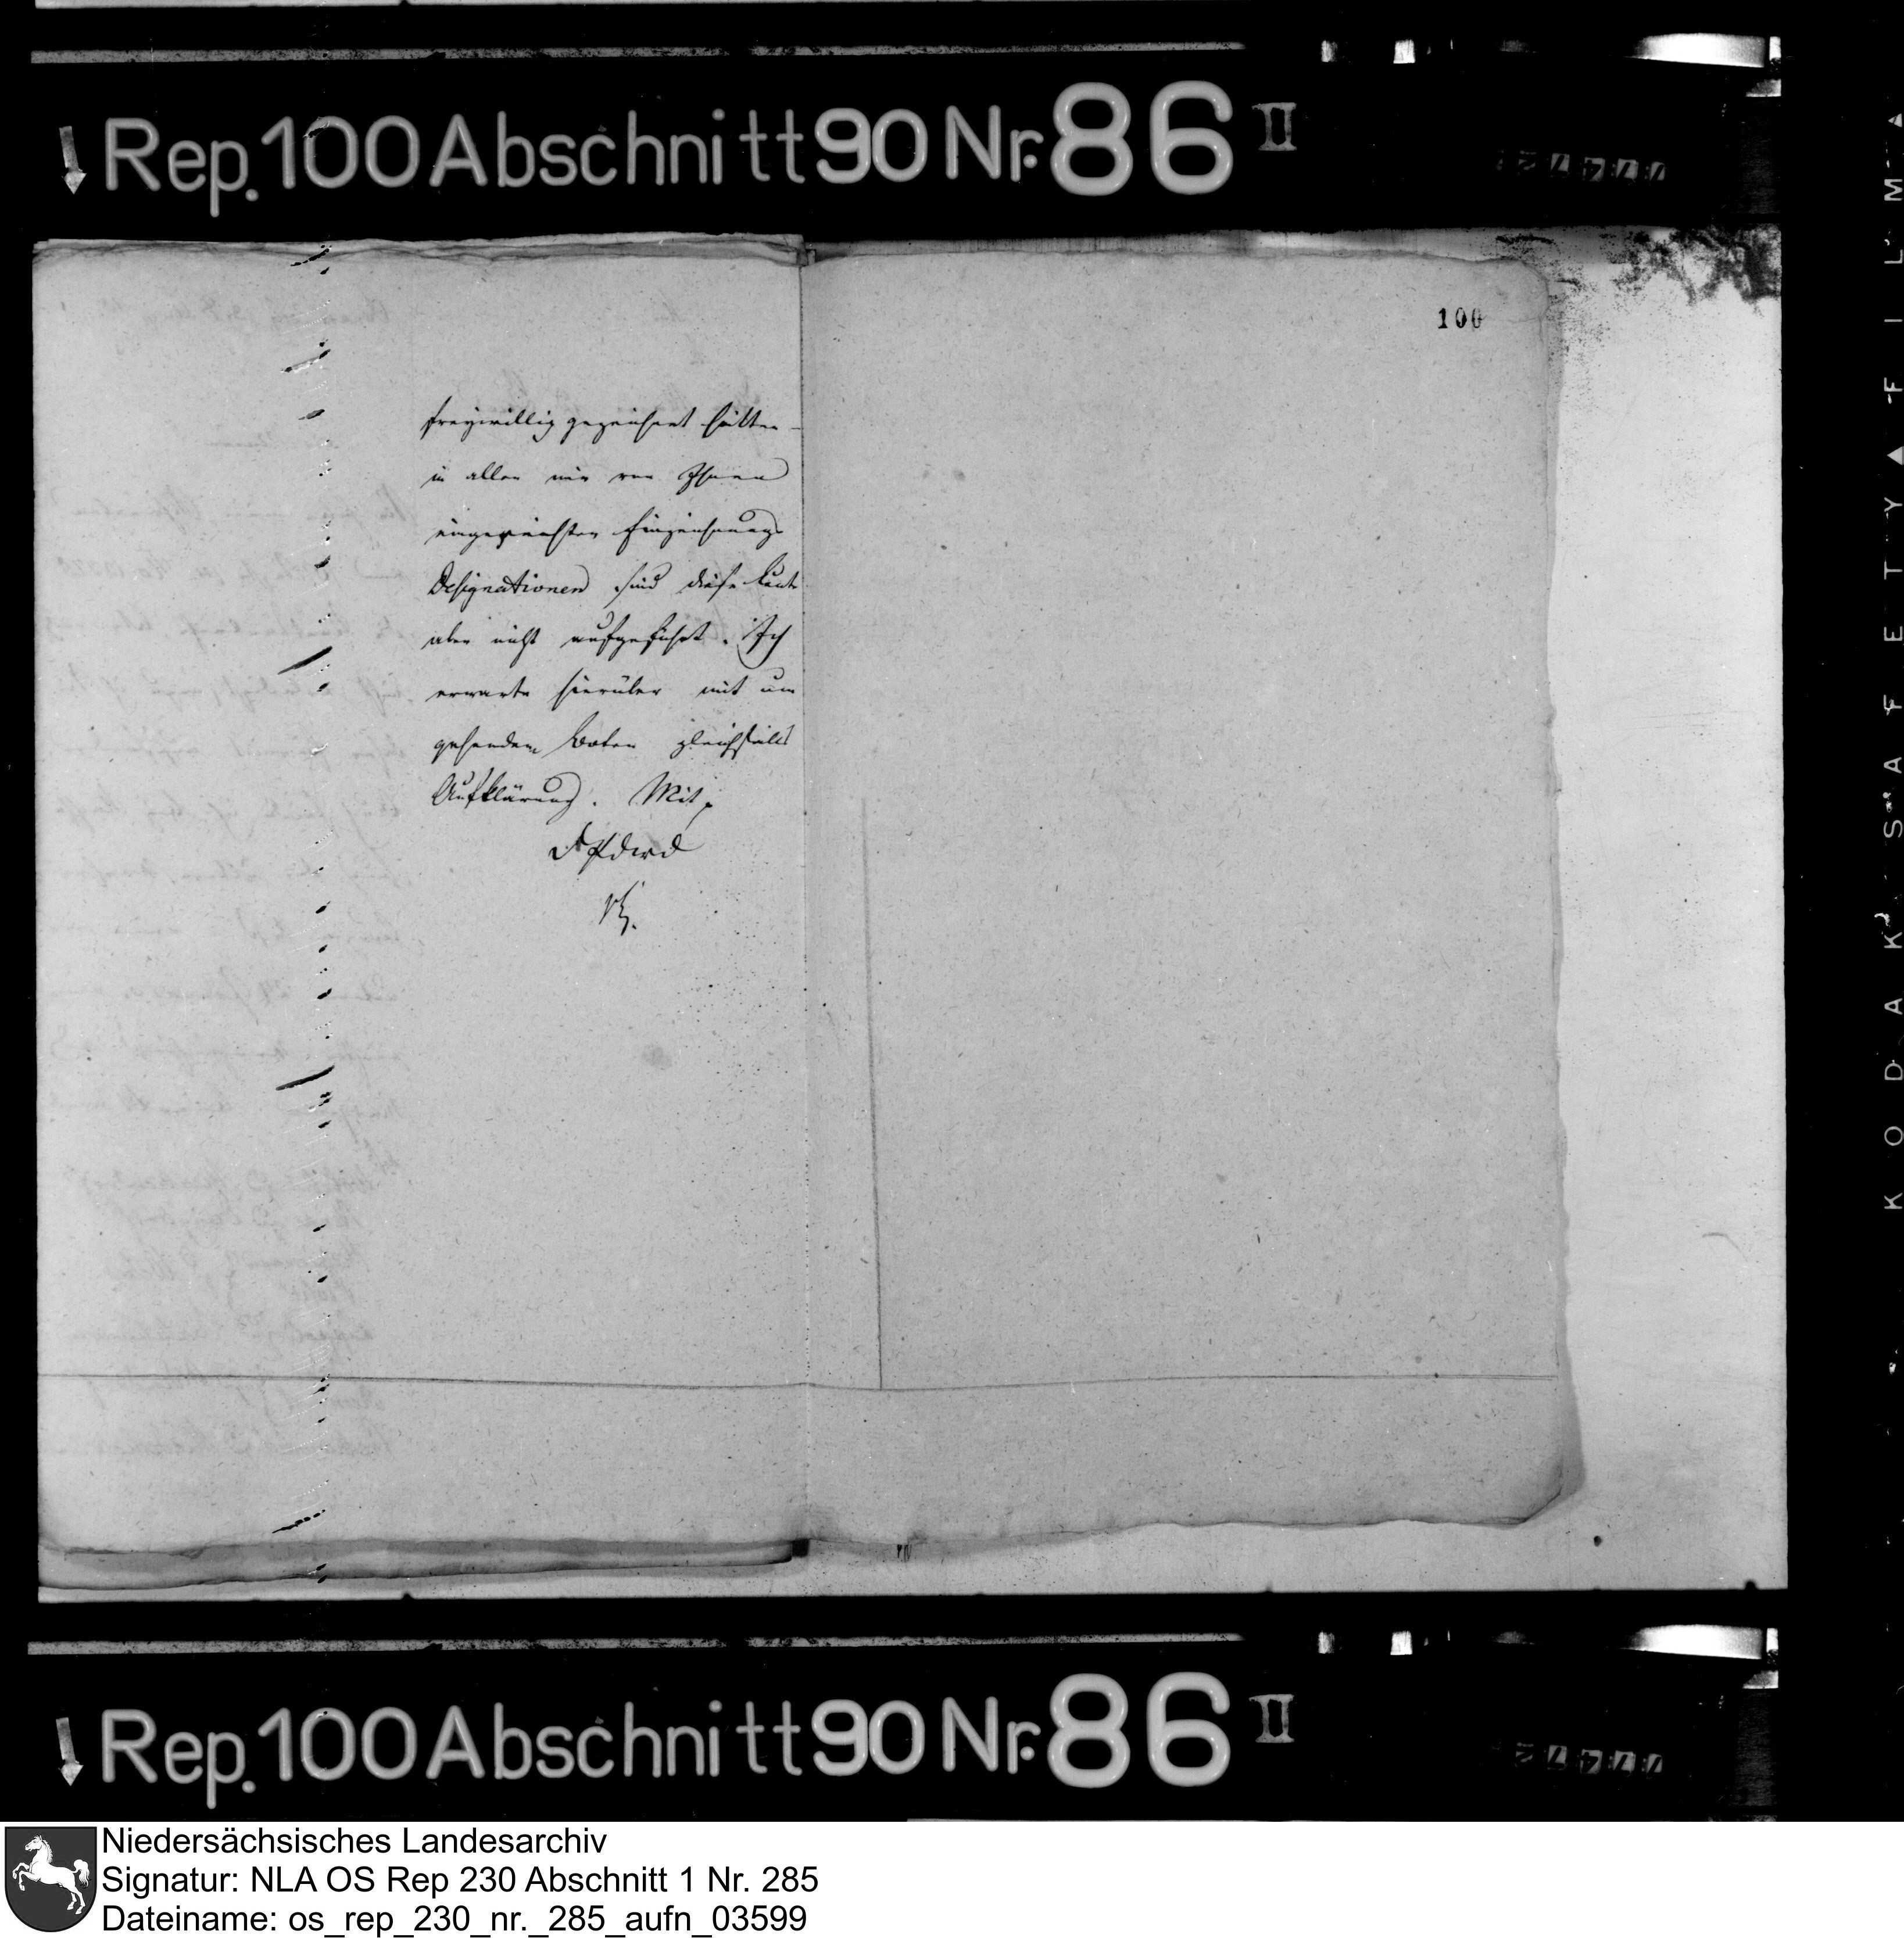 Rep. 100 Abschnitt 90 Nr. 86 II
100
freywillig gezeichnet hätten
in allen mir von Ihnen
eingereichten Einzeichnungs
Designationen sind diese Leute
aber nicht aufgeführt. Ich
erwarte hierüber mit um
gehendem Boten gleichfalls
Aufklärung. Mit
KODAK SAFETY FILM
Rep. 100 Abschnitt 90 Nr. 86 II
Niedersächsisches Landesarchiv
Signatur: NLA OS Rep 230 Abschnitt 1 Nr. 285
Dateiname: os_rep_230_nr._285_aufn_03599